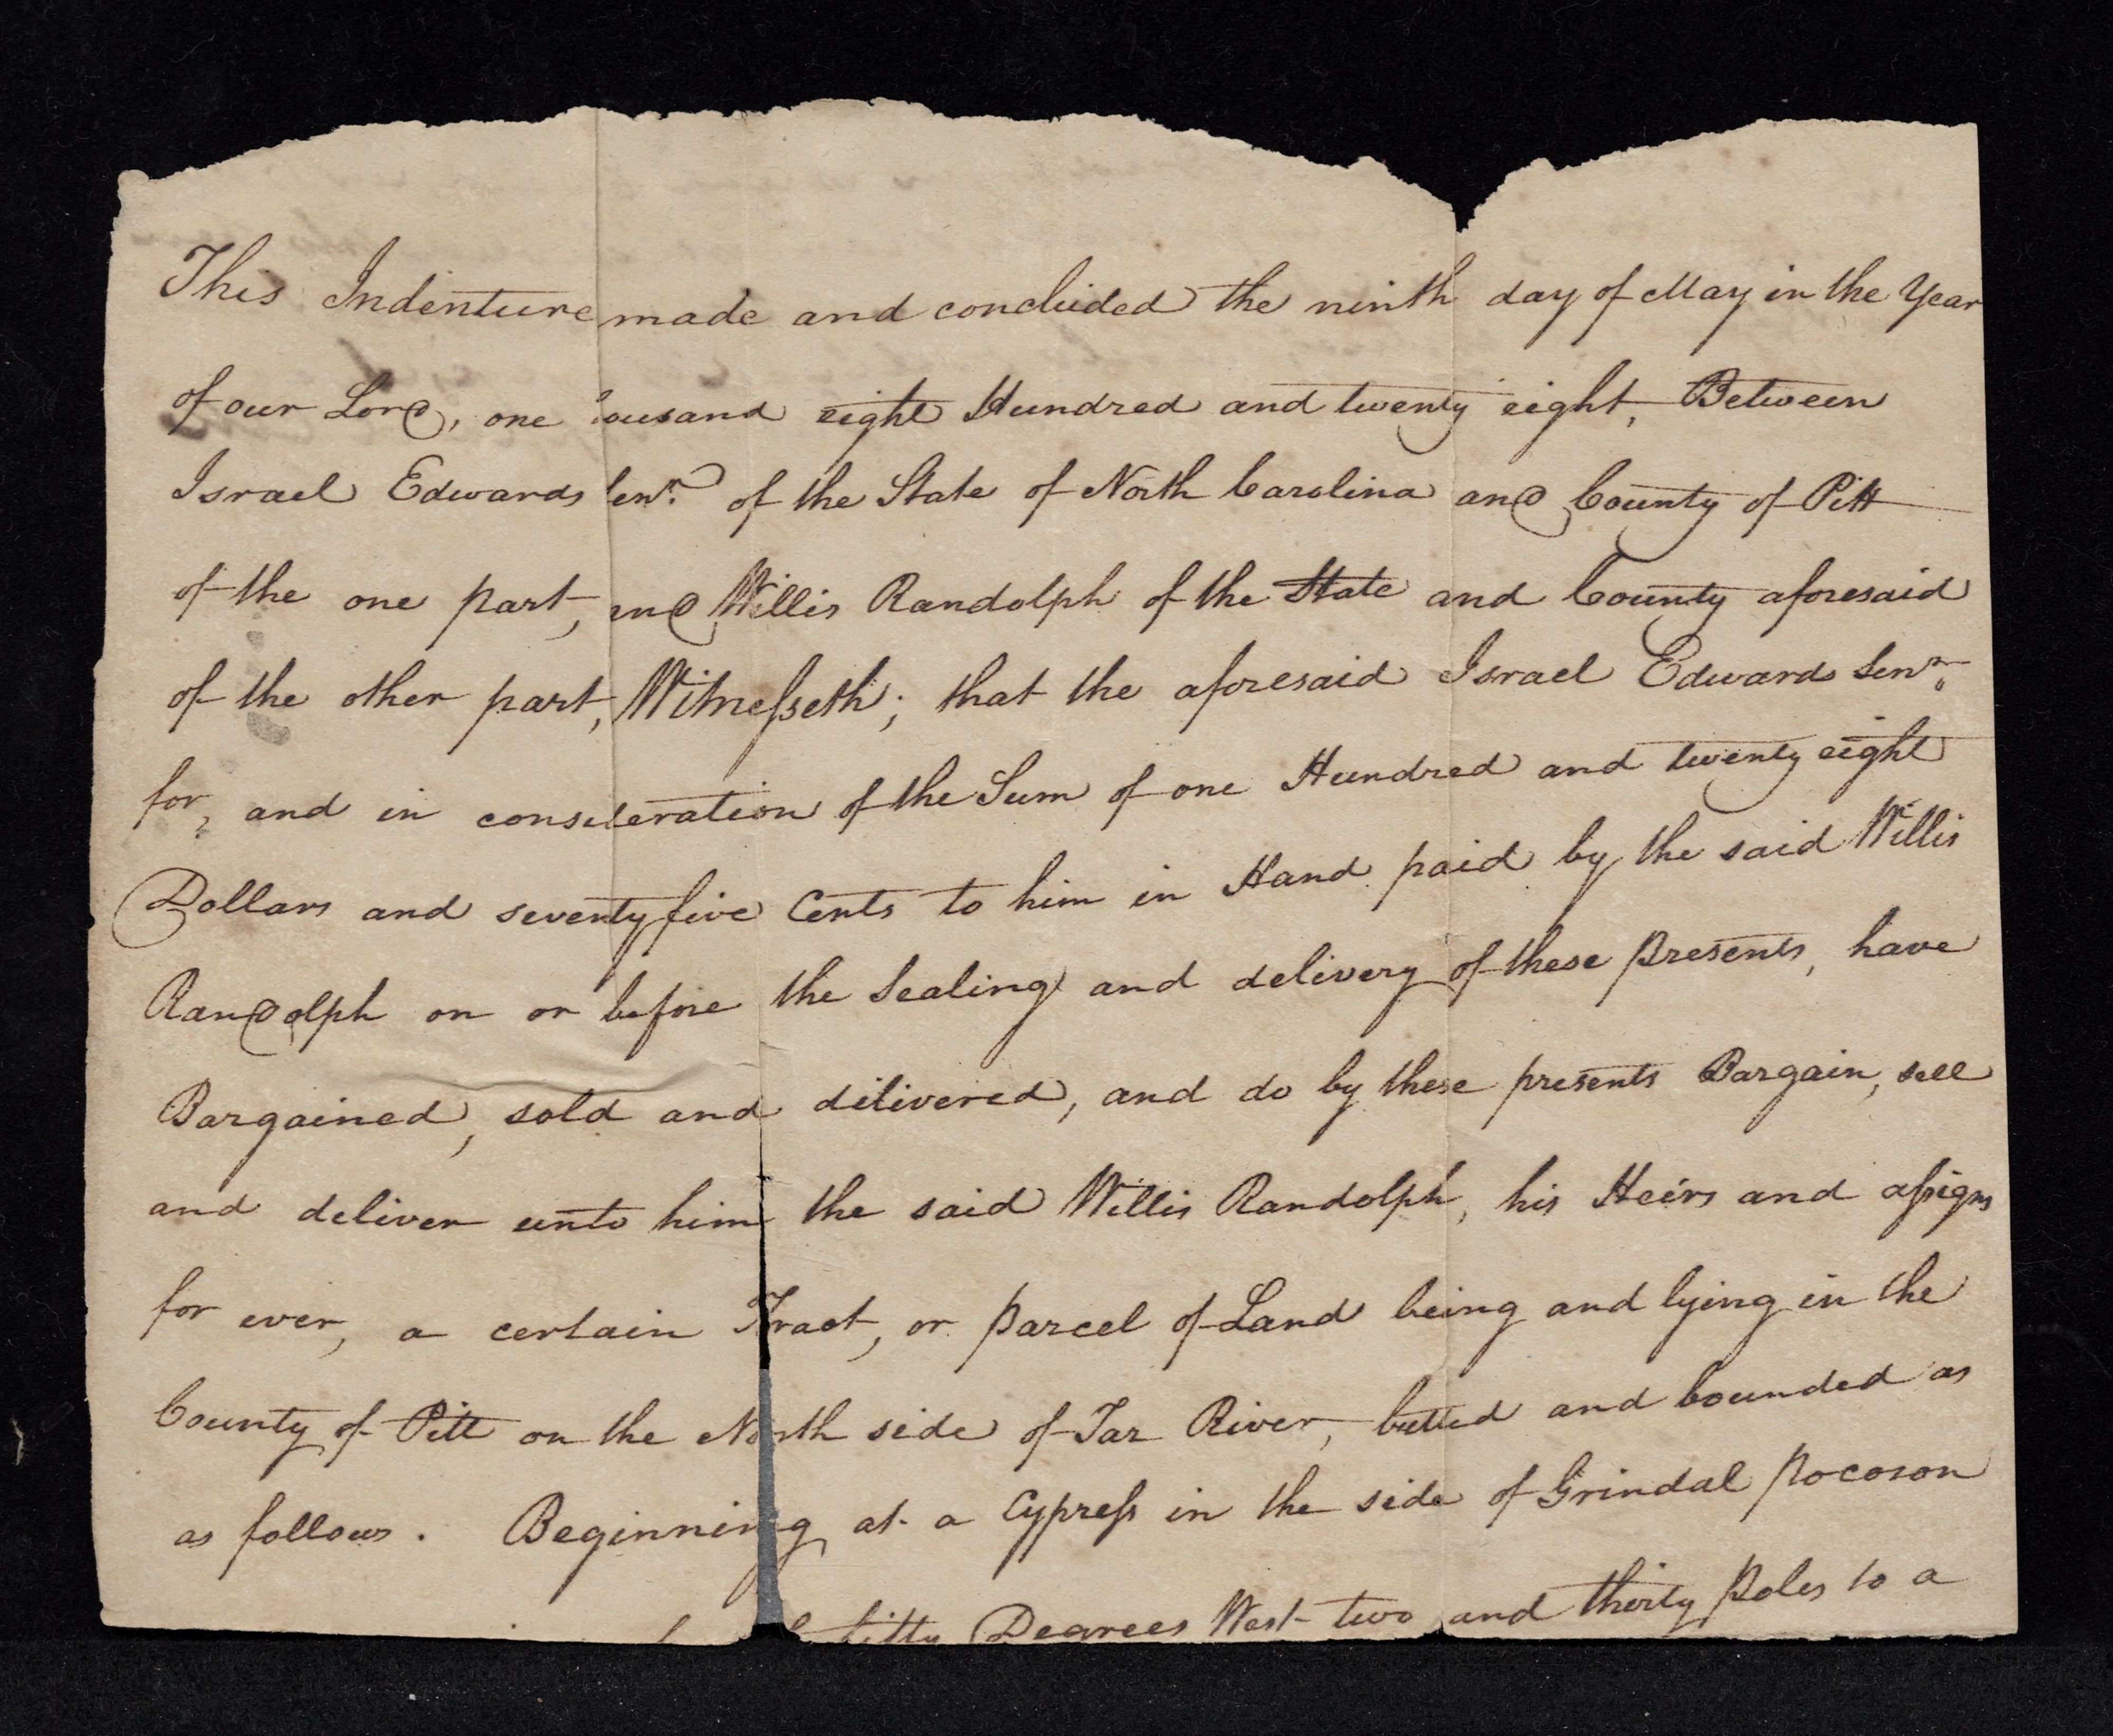 This Indenture made and concluded the ninth day of May in the Year
of our Lord, one ousand eight Hundred and twenty eight, Between
Israel Edwards Senr. of the State of North Carolina and County of Pitt
of the one part, and Willis Randolph of the State and County aforesaid
of the other part, Witnesseth; that the aforesaid Israel Edwards Senr.
for, and in consideration of the Sum of one Hundred and twenty eight
Dollars and seventy five Cents to him in Hand paid by the said Willis
Randolph on or before the Sealing and delivery of these presents, have
Bargained, sold and dilivered, and do by these presents Bargain, sell
and deliver unto him the said Willis Randolph, his Heirs and assigns
for ever, a certain Tract, or parcel of Land being and lying in the
County of Pitt on the North side of Tar River, butted and bounded as
as follows. Beginning at a Cypress in the side of Grindal pocoson
fifty Degrees West two and thirty Poles to a